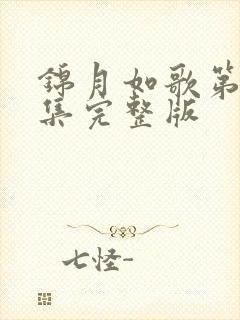 锦月如歌第
集完整版
七怪-